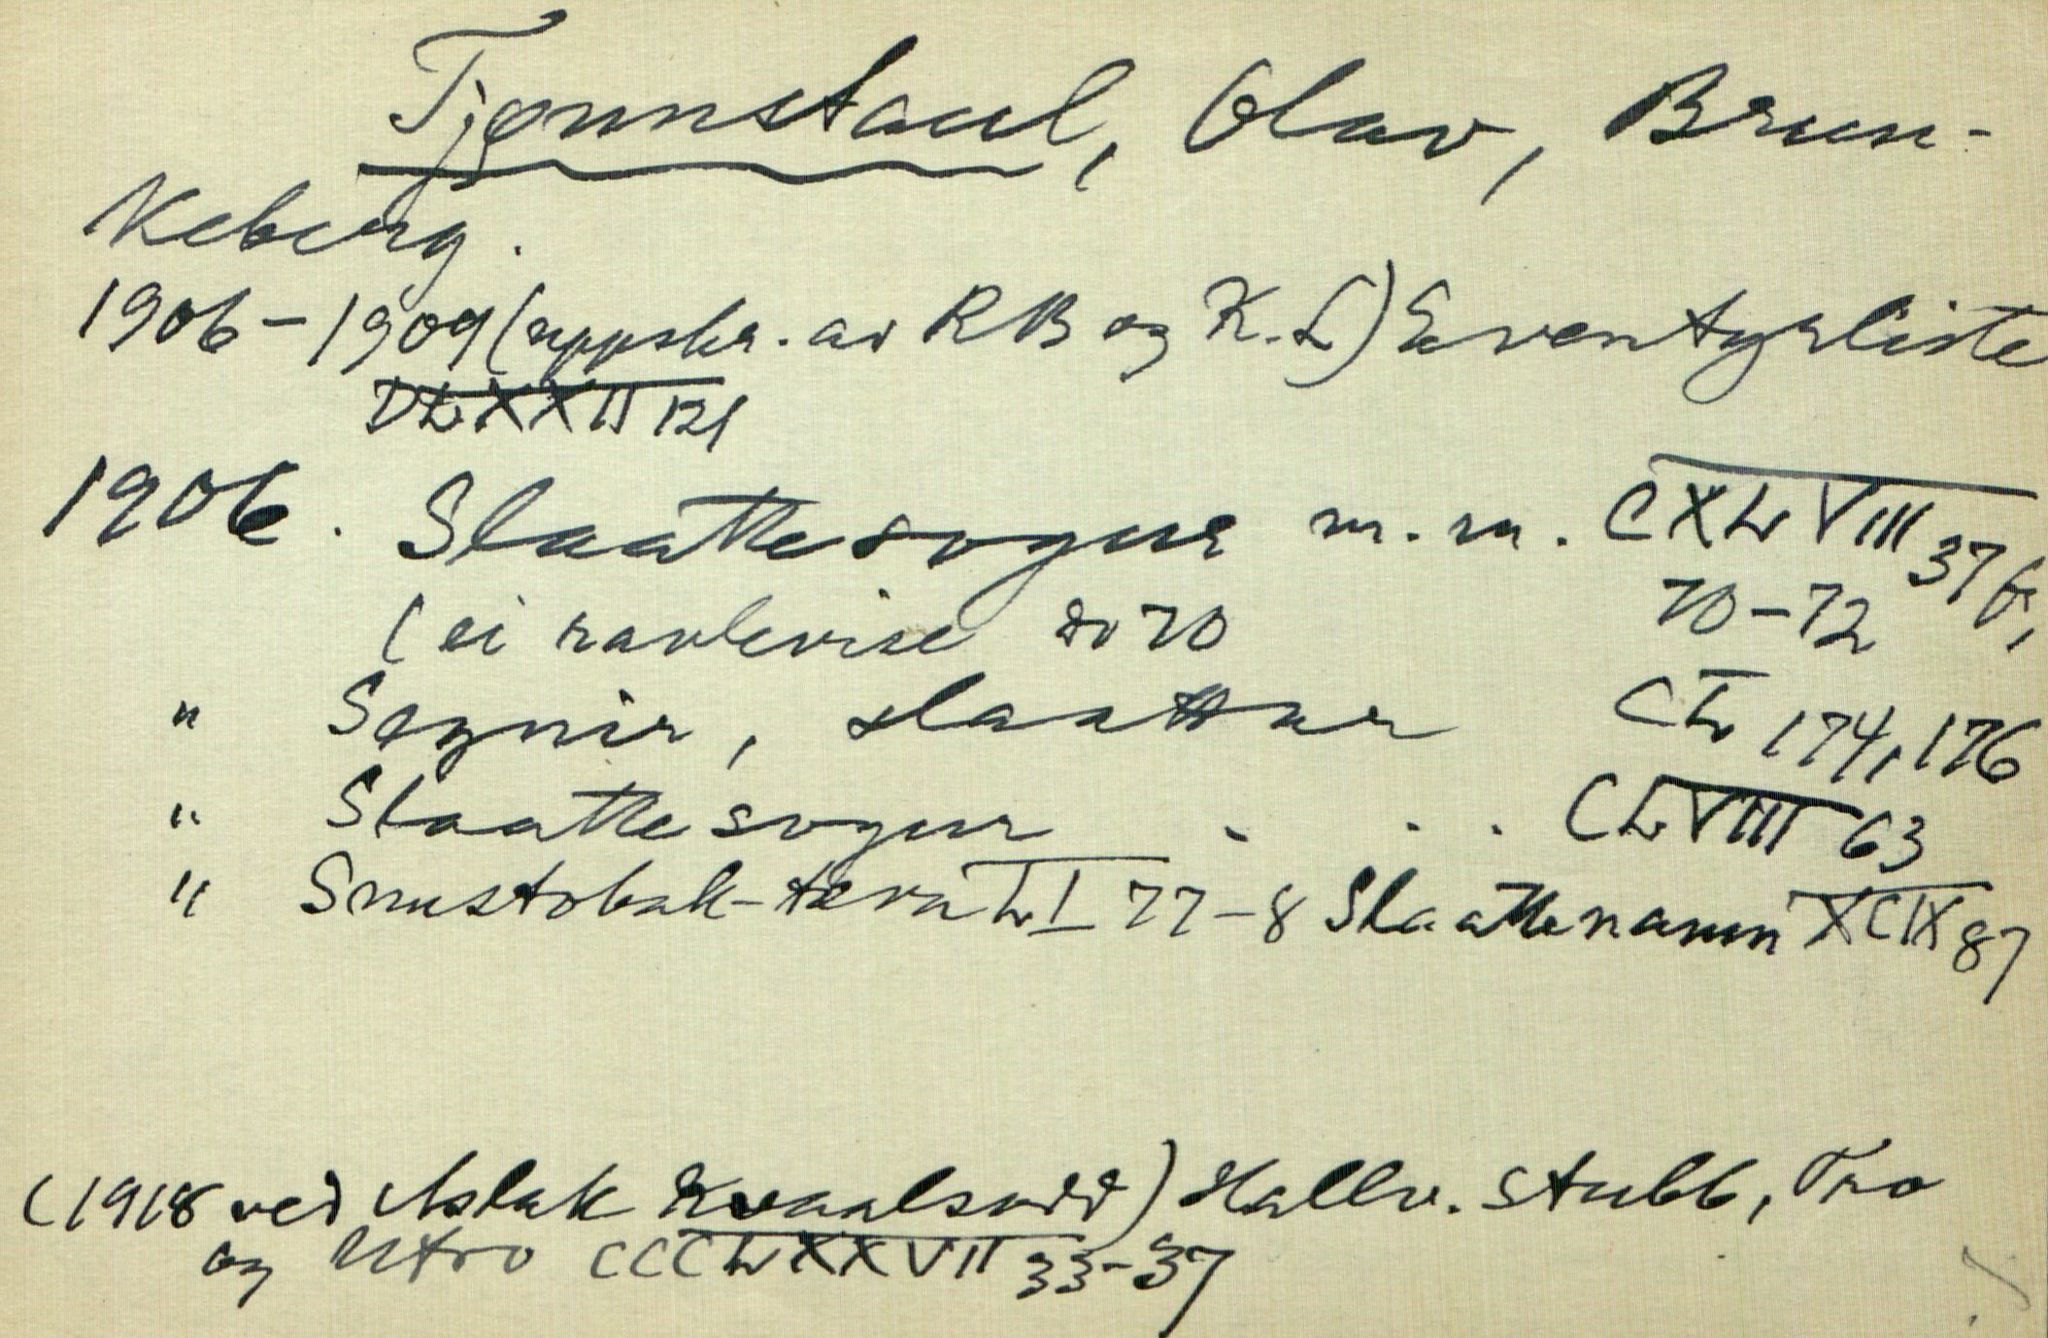 Tjønnstaul, Olav, Brun-
keberg.
1906-1909 (uppskr. av RB og K. L) Eventyrliste
DLXXII 121
1906. Slaattesogur m.m. CXLVIII 37 f,
(ei ravlevise so 70 70-72
" Segnir, slaattar CL 174, 176
" Slaattesogur - . . CLVIII 63
" Snustobak-teva LI 77-8 Slaattenamn XCIX 87
(1918 ved Aslak Kvaalsodd) Hallv. stubb, Tro
og Utro CCCLXXVII 33-37